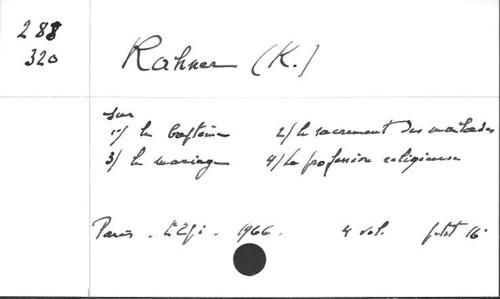 288
320
Rahner (K.)
sur
1/ le baptême 2/ le sacrement des malades
3/ le mariage 4/ la profession religieuse
Paris. 1966. 4 vol. petit 16°